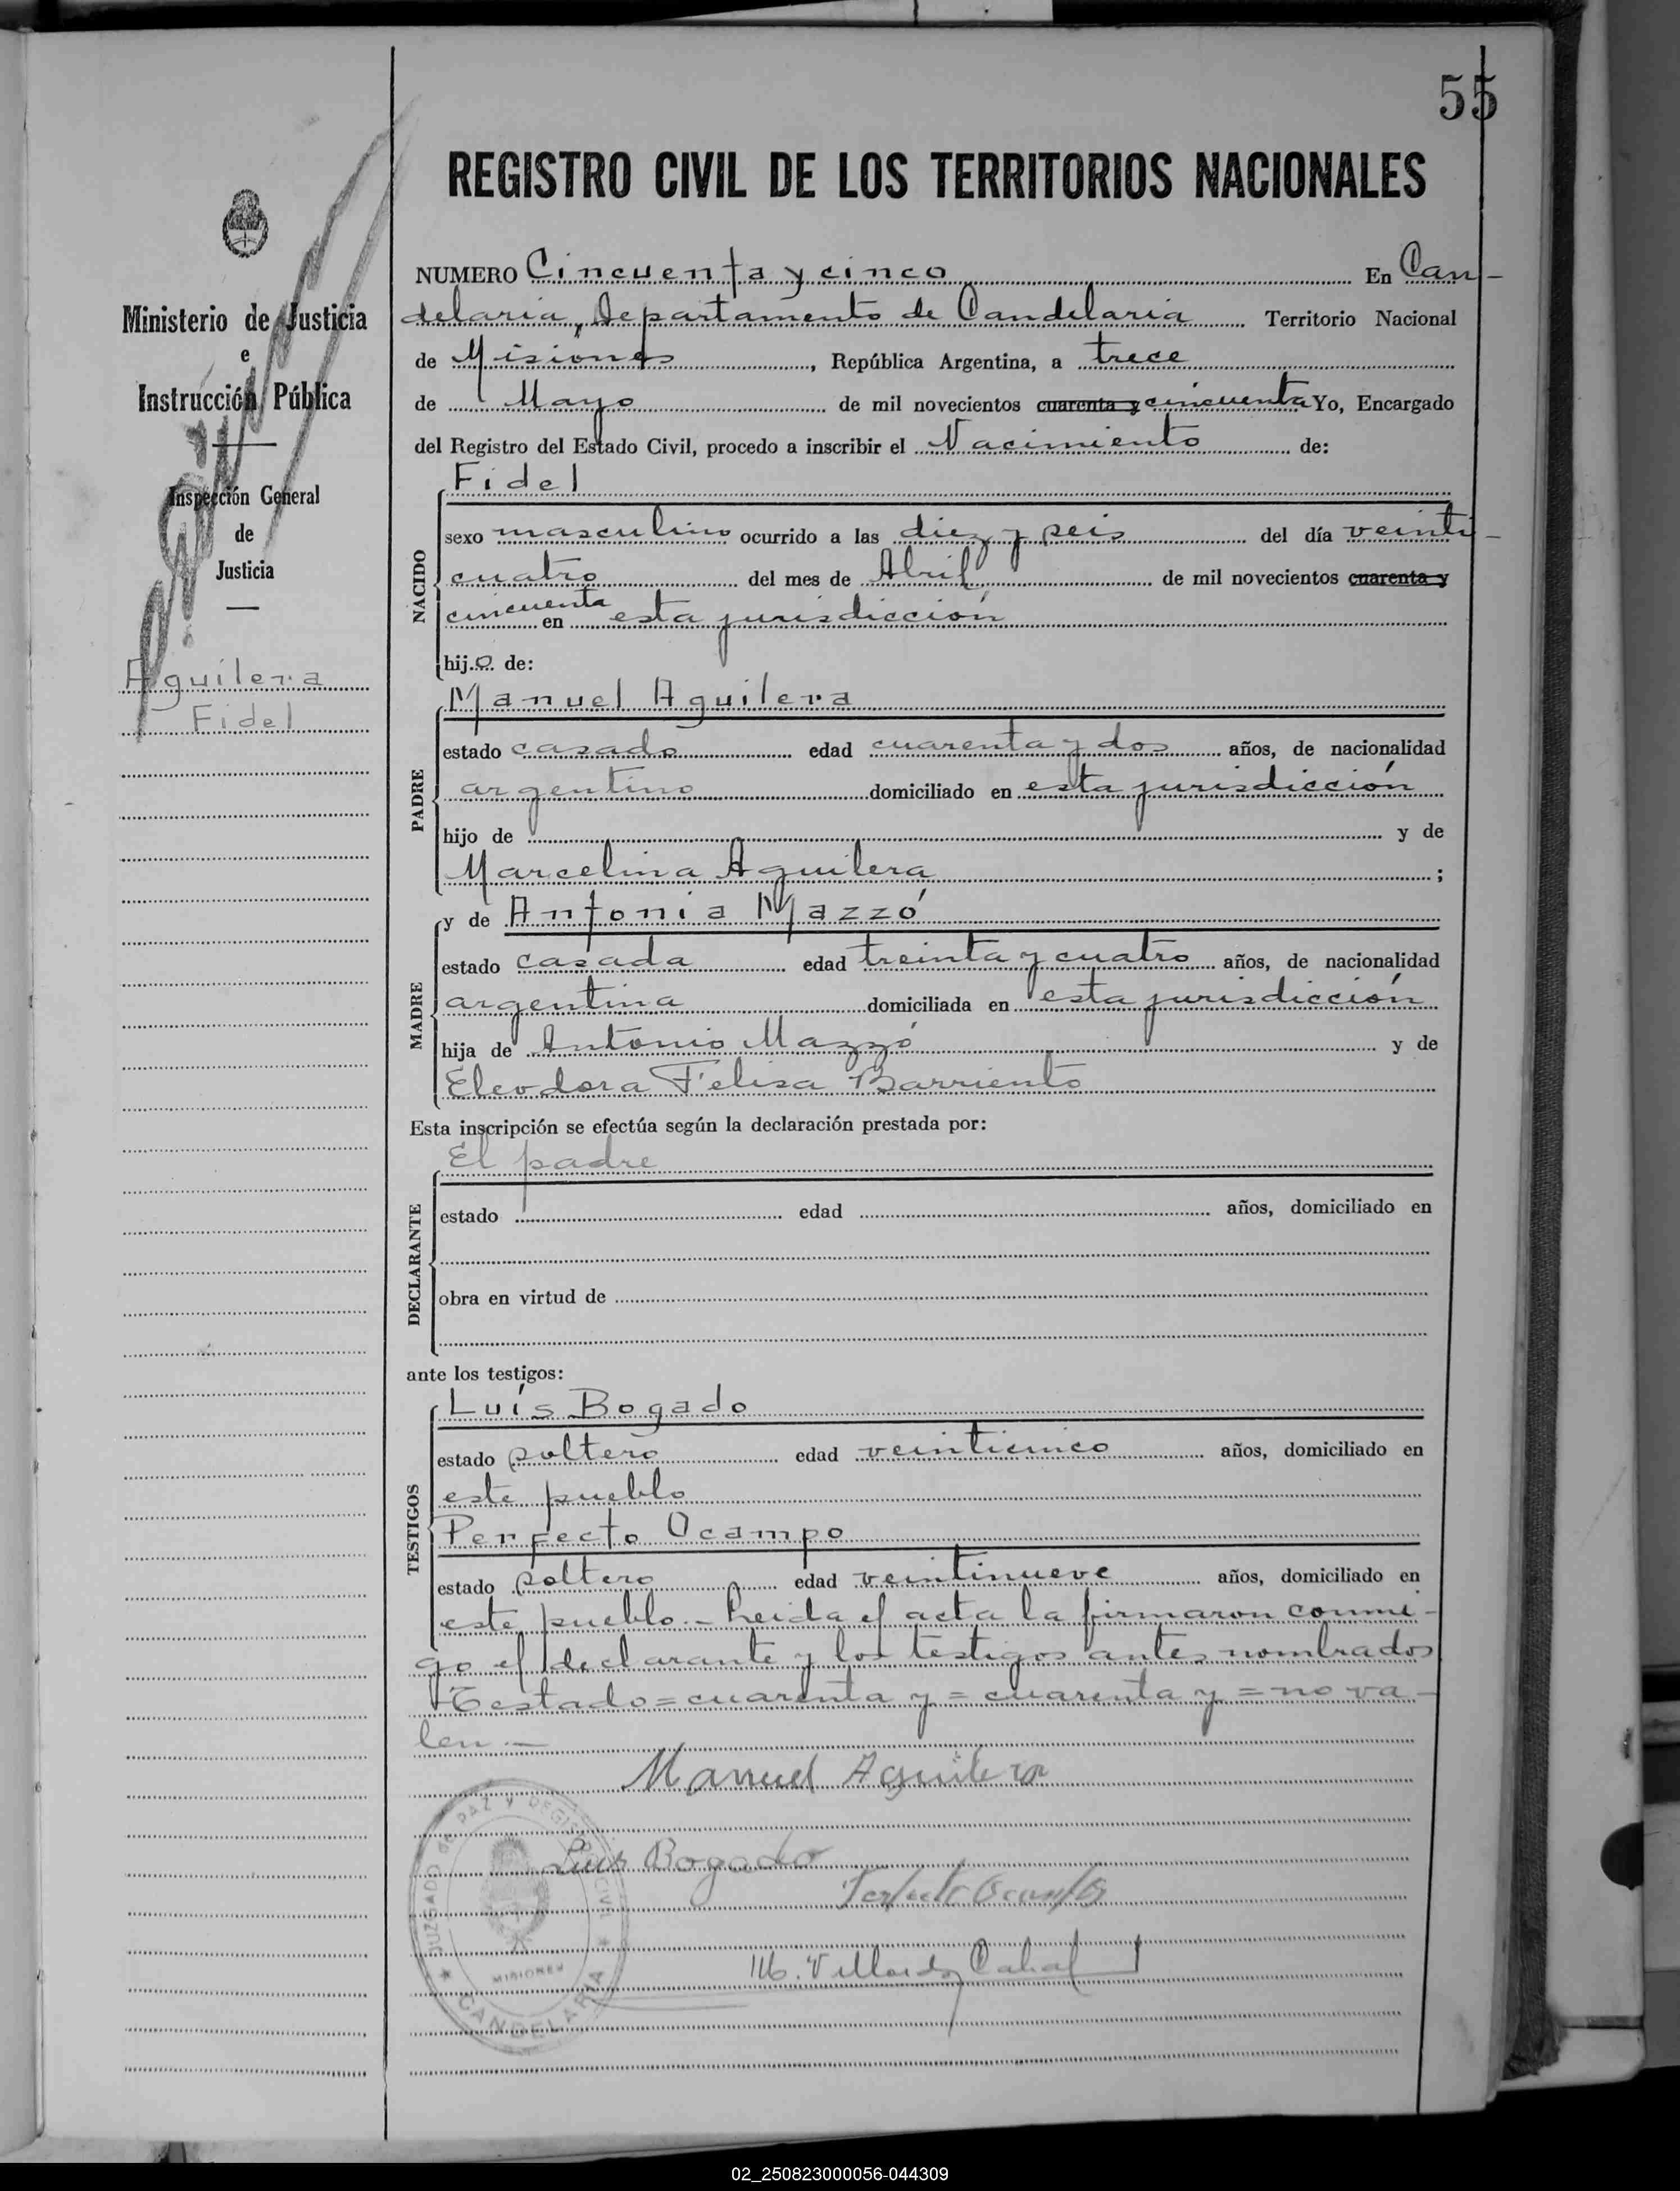 55
REGISTRO CIVIL DE LOS TERRITORIOS NACIONALES
Ministerio de Justicia
e
Instrucción Pública
Inspección General
de
Justicia
Aguilera
Fidel
NUMERO Cincuenta y cinco En Can-
delaria, Departamento de Candelaria Territorio Nacional
de Misiones, República Argentina, a trece
de Mayo de mil novecientos cuarenta y cincuenta Yo, Encargado
del Registro del Estado Civil, procedo a inscribir el Nacimiento de:
NACIDO
Fidel
sexo masculino ocurrido a las diez y seis del día veinti-
cuatro del mes de Abril de mil novecientos cuarenta y
cincuenta en esta jurisdicción
hijo de:
PADRE
Manuel Aguilera
estado casado edad cuarenta y dos años, de nacionalidad
argentino domiciliado en esta jurisdicción
hijo de y de
Marcelina Aguilera ;
MADRE
y de Antonia Mazzó
estado casada edad treinta y cuatro años, de nacionalidad
argentina domiciliada en esta jurisdicción
hija de Antonio Mazzó y de
Eleodora Felisa Barriento
Esta inscripción se efectúa según la declaración prestada por:
DECLARANTE
El padre
estado edad años, domiciliado en
obra en virtud de
ante los testigos:
TESTIGOS
Luís Bogado
estado soltero edad veinticinco años, domiciliado en
este pueblo
Perfecto Ocampo
estado soltero edad veintinueve años, domiciliado en
este pueblo.- Leida el acta la firmaron conmi-
go el declarante y los testigos antes nombrados
Testado=cuarenta y=cuarenta y=no va-
len.-
Manuel Aguilera
Luis Bogado
Perfecto Ocampo
M. Cabal
JUZGADO DE PAZ Y REGISTRO CIVIL
MISIONES
CANDELARIA
02_250823000056-044309